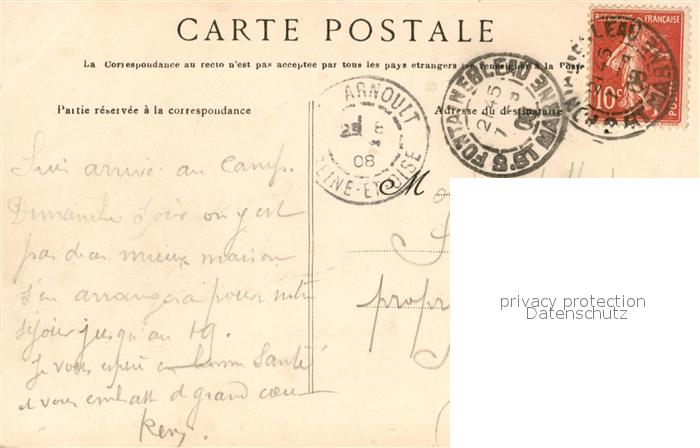 CARTE POSTALE
La Correspondance au recto n'est pas acceptée par tous les pays etrangers (se renseigner à la Poste
RÉPUBLIQUE FRANÇAISE
10c
POSTES
FONTAINEBLEAU
SNE ET MARNE
2 45
ARNOULT
SEINE-ET-OISE
29 8
08
Partie réservée à la correspondance
Adresse du destinataire
M
Suis arrivé au Camp
Dimanche soir on y est
pas des mieux, mais on
s'en arrangera pour notre
séjour jusqu'au 19.
Je vous espère en bonne Santé
et vous embrasse d grand cœur
propr
privacy protection
Datenschutz